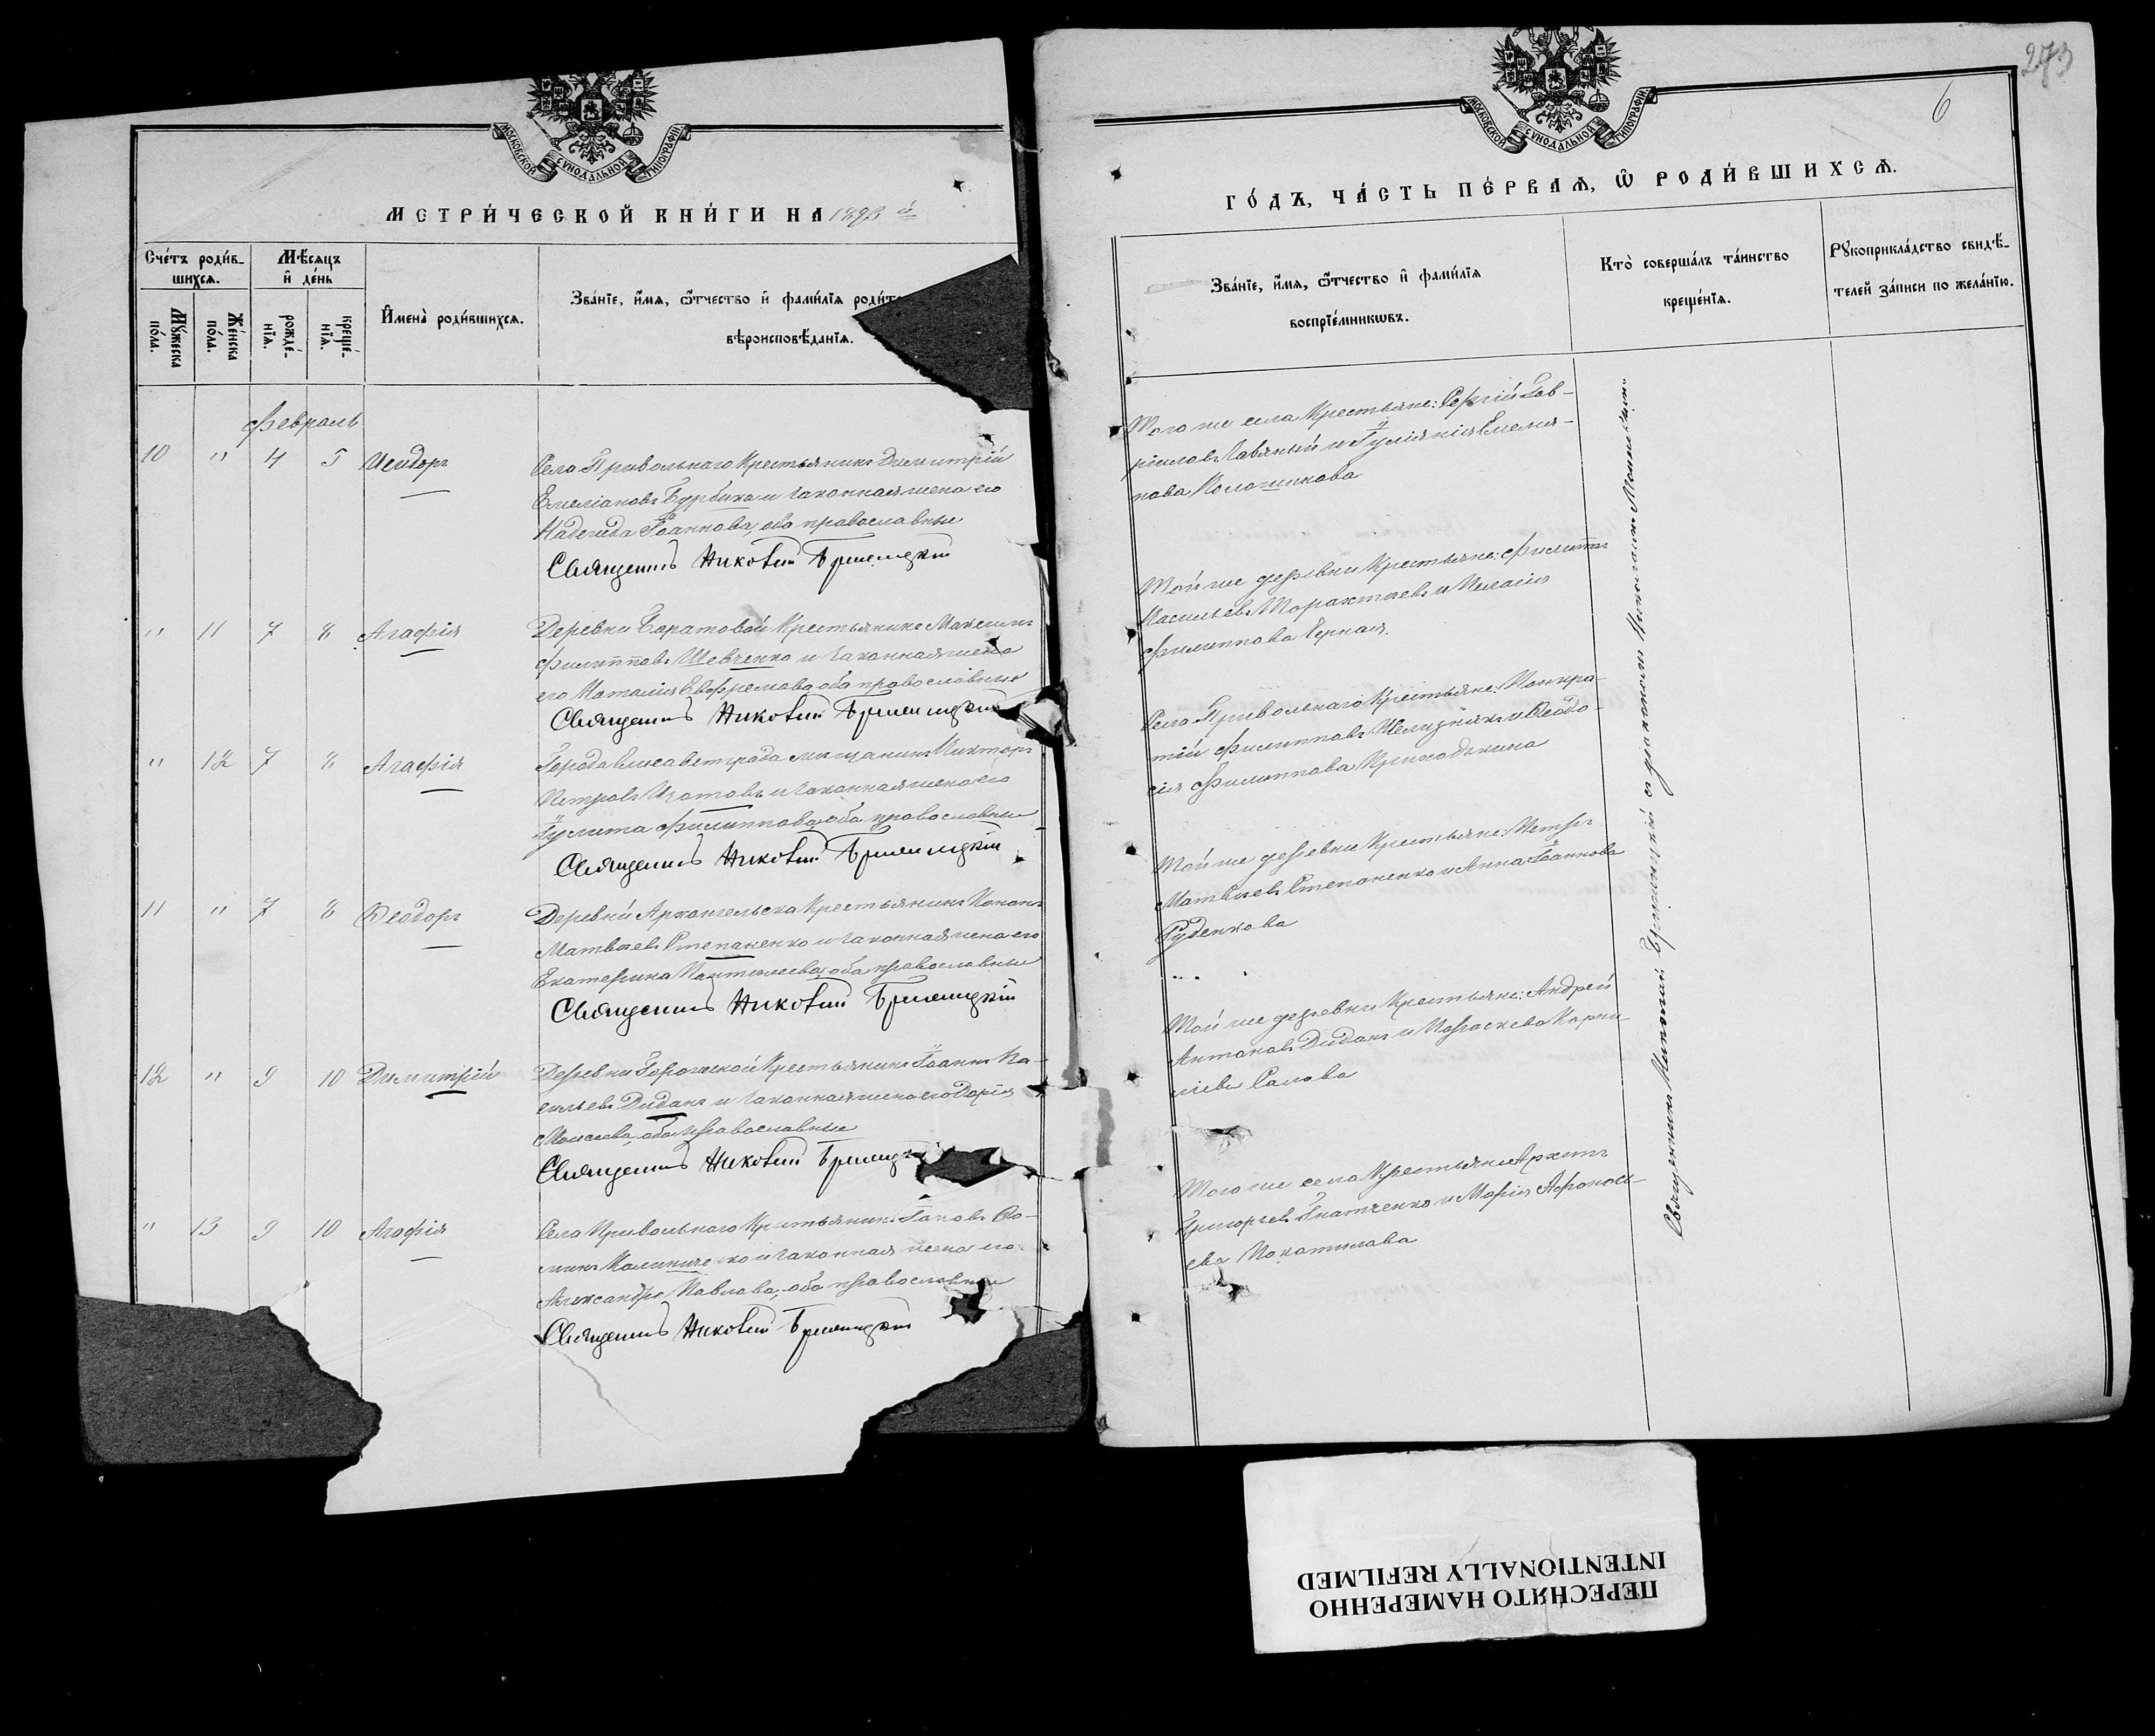 МОСКОВСКОЙ СѴНОДАЛЬНОЙ ТИПОГРАФІИ
МЕТРИ́ЧЕСКОЙ КНИ́ГИ НА 1893 й
Сче́тъ роди́вшихсѧ.
Мꙋ́жеска по́ла.
Же́нска по́ла.
Мѣ́сѧцъ и҆ де́нь
рожде́нїѧ.
креще́нїѧ.
И҆мена̀ роди́вшихсѧ.
Зва́нїе, и҆́мѧ, ѻ҆́тчество и҆ фами́лїѧ
вѣроисповѣ́данїѧ.
Февраль
10 " 4 5 Исидоръ
Села Привольнаго Крестьянинъ Димитрій
Емеліановъ Бурбика и законная жена его
Надежда Іоаннова, оба православные
Священникъ Никовій
" 11 7 8 Агафія
Деревни Баратовой Крестьянинъ Максимъ
Филипповъ Шевченко и законная жена
его Наталія Евфремова оба православные
Священникъ Никовій
" 12 7 8 Агафія
Города Елисаветграда мѣщанинъ Викторъ
Петровъ Изотовъ и законная жена его
Іулита Филиппова, оба православные
Священникъ Никовій
11 " 7 8 Ѳеодоръ
Деревни Архангельска Крестьянинъ Кононъ
Матвѣевъ Степаненко и законная жена его
Екатерина Пантилеева, оба православные
Священникъ Никовій
12 " 9 10 Димитрій
Деревни Горожской Крестьянинъ Іоаннъ Ва-
сильевъ Диданъ и законная жена его Дарія
Моисеева, оба православные
Священникъ Никовій
" 13 9 10 Агафія
Села Привольнаго Крестьянинъ Іаковъ Ѳо-
минъ и законная жена его
Александра Павлова, оба православные
Священникъ Никовій
273
6
МОСКОВСКОЙ СѴНОДАЛЬНОЙ ТИПОГРАФІИ
ГО́ДЪ, ЧА́СТЬ ПЕ́РВАѦ, Ѽ РОДИ́ВШИХСѦ.
Зва́нїе, и҆́мѧ, ѻ҆́тчество и҆ фами́лїѧ
воспрїе́мникѡвъ.
Кто̀ соверша́лъ та́инство
креще́нїѧ.
Рꙋкоприкла́дство свидѣ́-
телей за́писи по жела́нїю.
Того же села Крестьяне: Сергій Гав-
ріиловъ и Іуліанія Емелья-
нова
Той же деревни Крестьяне: Филиппъ
Васильевъ и Пелагія
Филиппова Черная.
Села Привольнаго Крестьяне: Панкра-
тій Филипповъ Желизнякъ и Ѳеодо-
сія Филиппова Приходькина
Той же деревни Крестьяне: Петръ
Матвѣевъ Степаненко и Анна Іоаннова
Руденкова
Той же деревни Крестьяне: Андрей
Антоновъ Диданъ и Параскева Корни-
ліева
Того же села Крестьяне Архипъ
Григорьевъ Гнатченко и Марія Афанась-
ева Покатилова
Священникъ Никовій съ діакономъ Николаемъ
ПЕРЕСНЯТО НАМЕРЕННО
INTENTIONALLY REFILMED